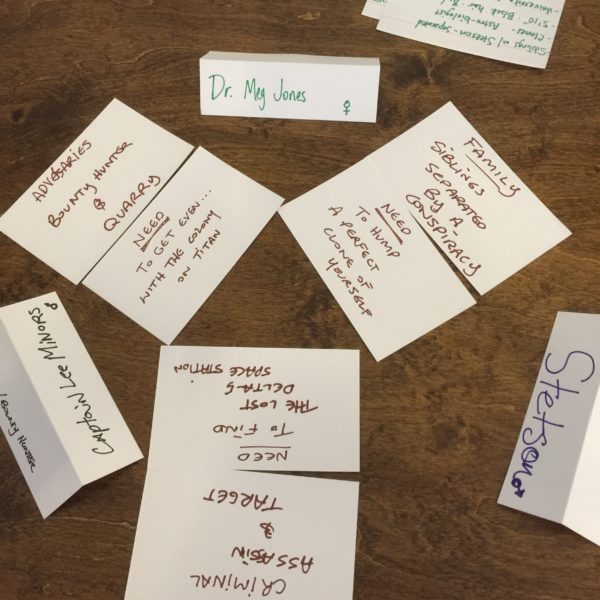 Siblings w/ Stetson - separated
- Clones - Astro-biologist
- 5'10" Black hair -
Dr. Meg Jones ♀
ADVERSARIES
BOUNTY HUNTER
&
QUARRY
NEED
TO GET EVEN...
WITH THE COLONY
ON TITAN
FAMILY
SIBLINGS
SEPARATED
BY A
CONSPIRACY
NEED
TO HUMP
A PERFECT
CLONE OF
YOURSELF
Captain Lee MINORS ♂
BOUNTY HUNTER
NEED
TO FIND
THE LOST
DELTA-5
SPACE STATION
CRIMINAL
ASSASSIN
&
TARGET
Stetson ♂